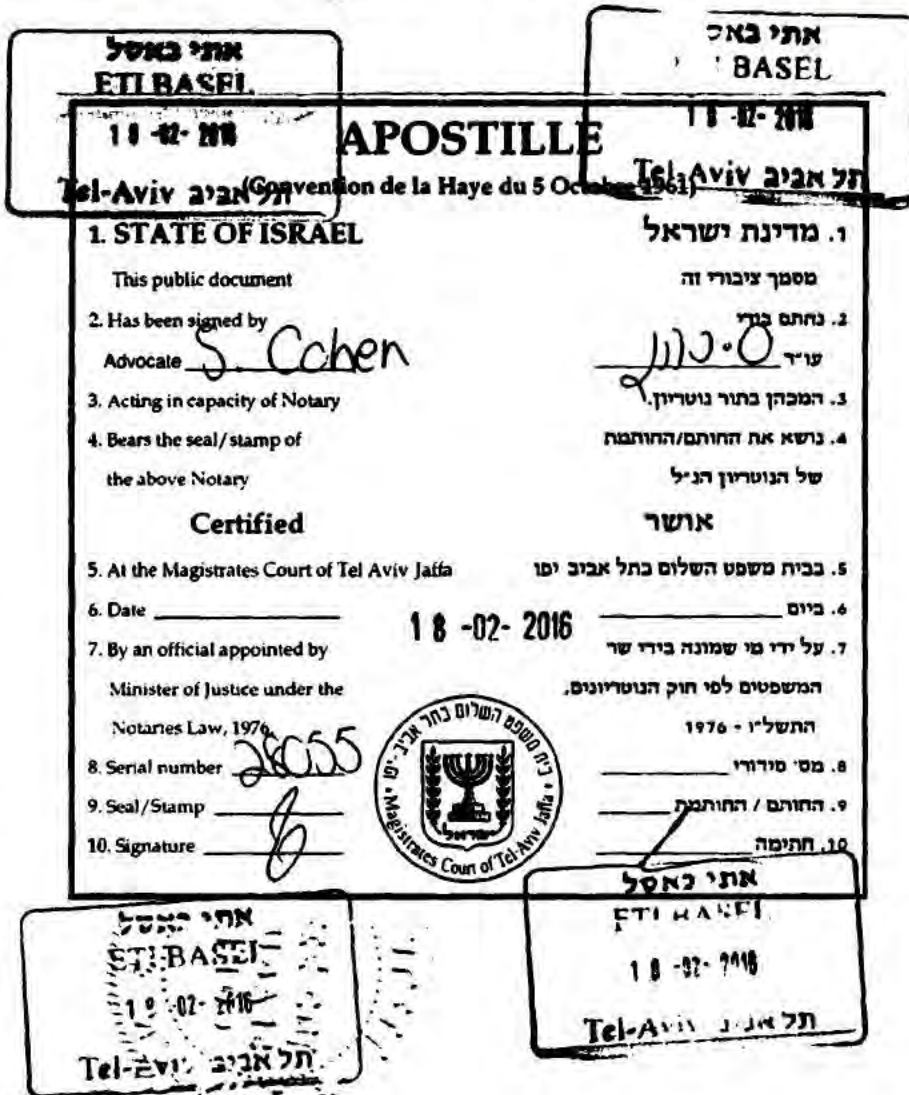 אתי באסל
ETI BASEL
18-02-2016
Tel-Aviv תל אביב
אתי באס
BASEL
18-02-2016
Tel-Aviv תל אביב
APOSTILLE
(Convention de la Haye du 5 Octobre 1961)
1. STATE OF ISRAEL
This public document
2. Has been signed by
Advocate S. Cohen
3. Acting in capacity of Notary
4. Bears the seal/stamp of
the above Notary
Certified
5. At the Magistrates Court of Tel Aviv Jaffa
6. Date
18-02-2016
7. By an official appointed by
Minister of Justice under the
Notaries Law, 1976
8. Serial number 26055
9. Seal/Stamp
10. Signature
1. מדינת ישראל
מסמך ציבורי זה
2. נחתם בידי
עו"ד ס. כהן
3. המכהן בתור נוטריון.
4. נושא את החותם/החותמת
של הנוטריון הנ"ל
אושר
5. בבית משפט השלום בתל אביב יפו
6. ביום
7. על ידי מי שמונה בידי שר
המשפטים לפי חוק הנוטריונים,
התשל"ו - 1976
8. מס' סידורי
9. החותם / החותמת
10. חתימה
בית משפט השלום בתל אביב-יפו
Magistrates Court of Tel-Aviv Jaffa
ישראל
אתי באסל
ETI BASEL
18-02-2016
Tel-Aviv תל אביב
אתי באסל
ETI BASEL
18-02-2016
Tel-Aviv תל אביב